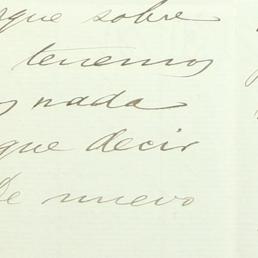 rque sobre
tenemos
s nada
que decir
De nuevo